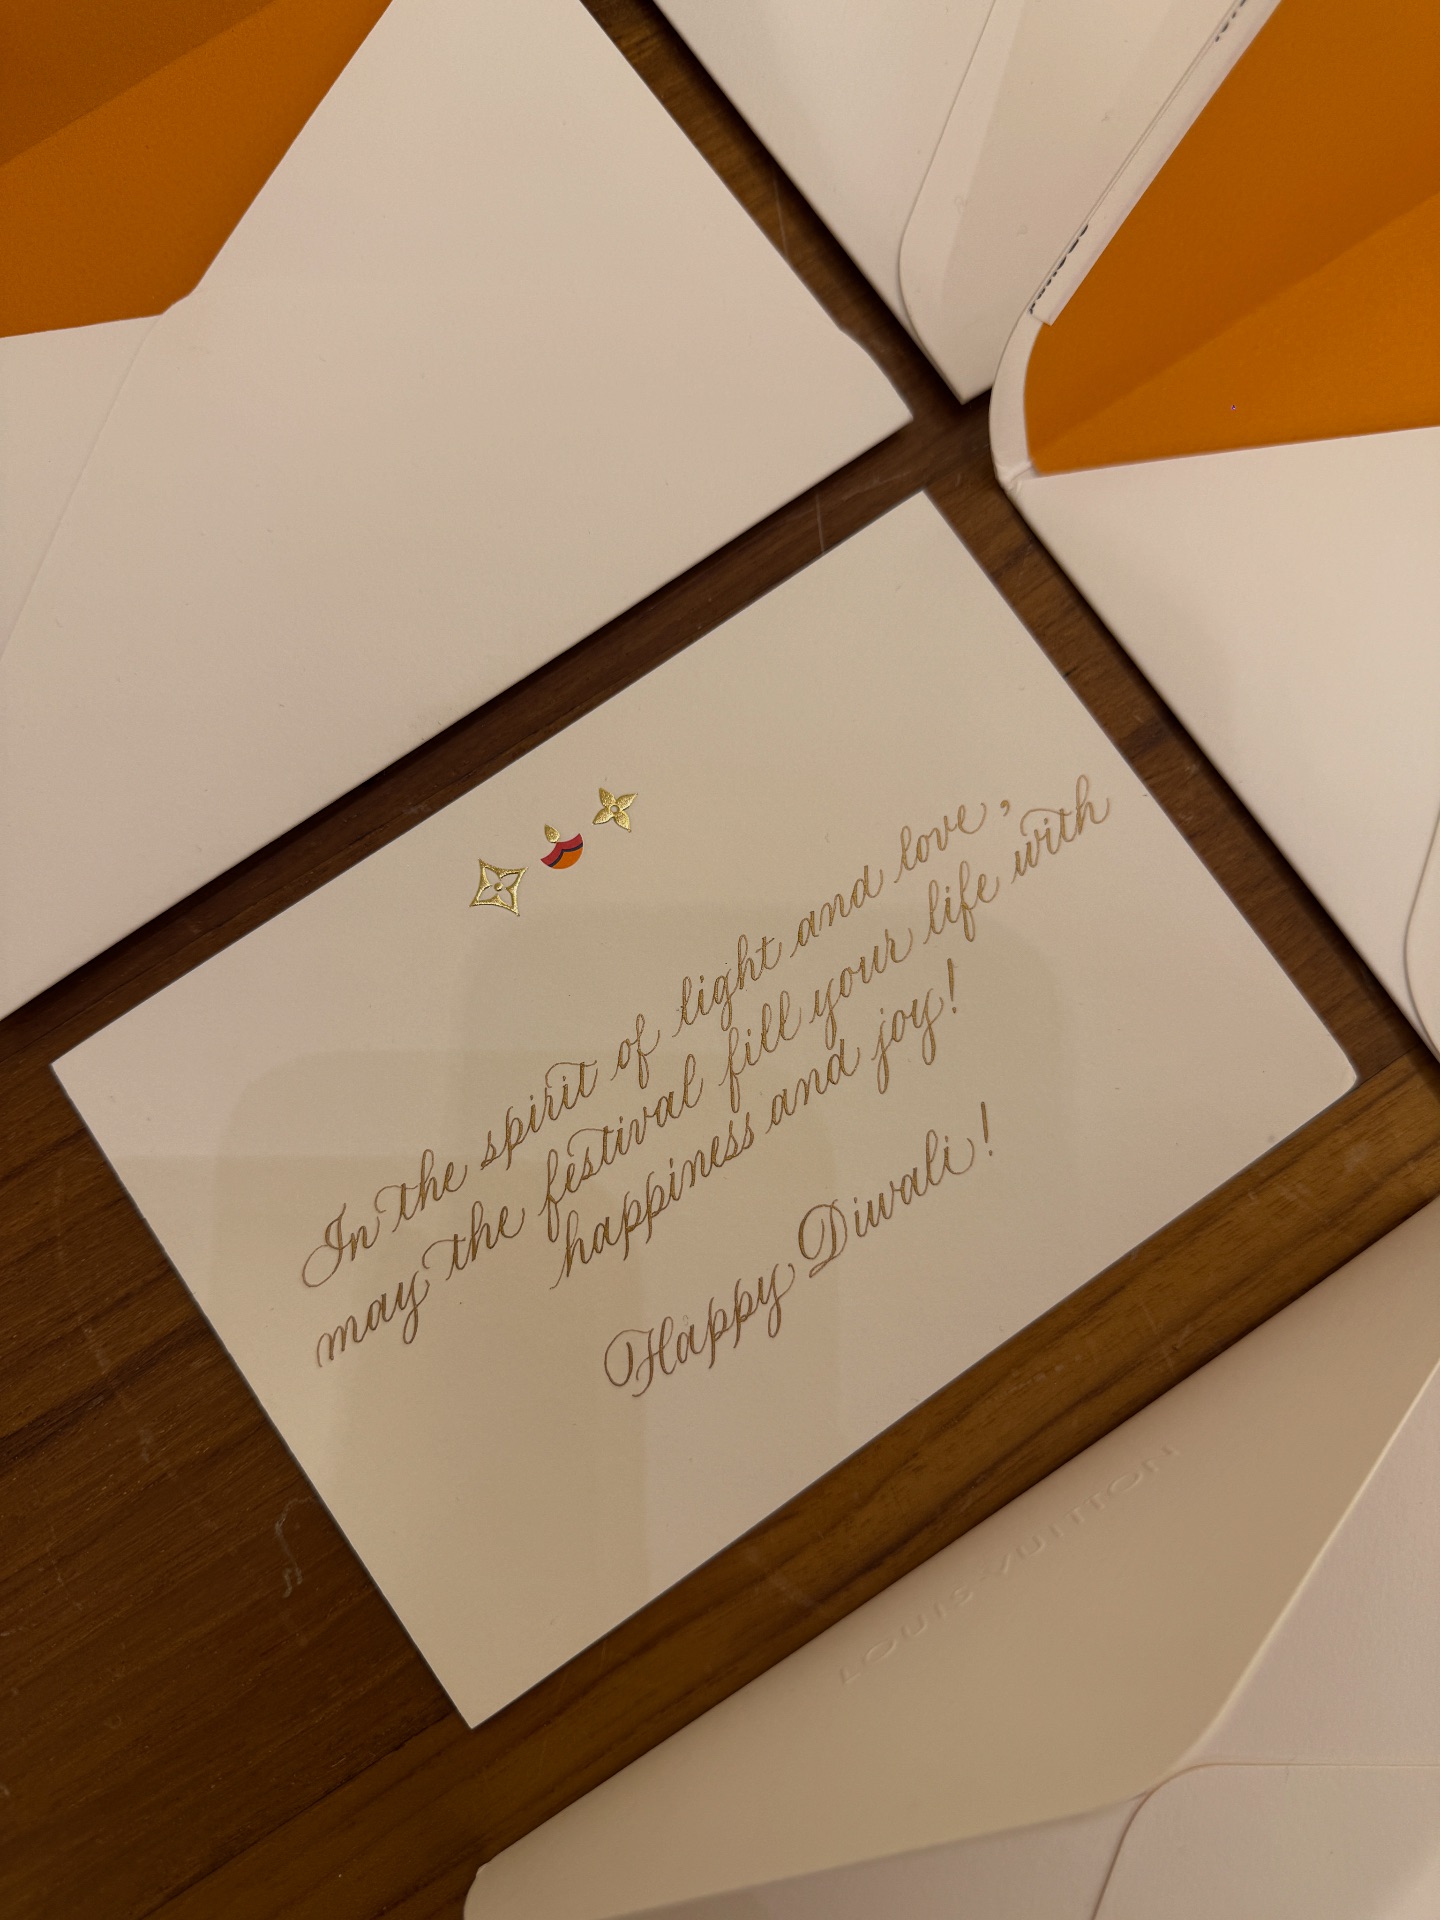 In the spirit of light and love,
may the festival fill your life with
happiness and joy!
Happy Diwali!
LOUIS VUITTON